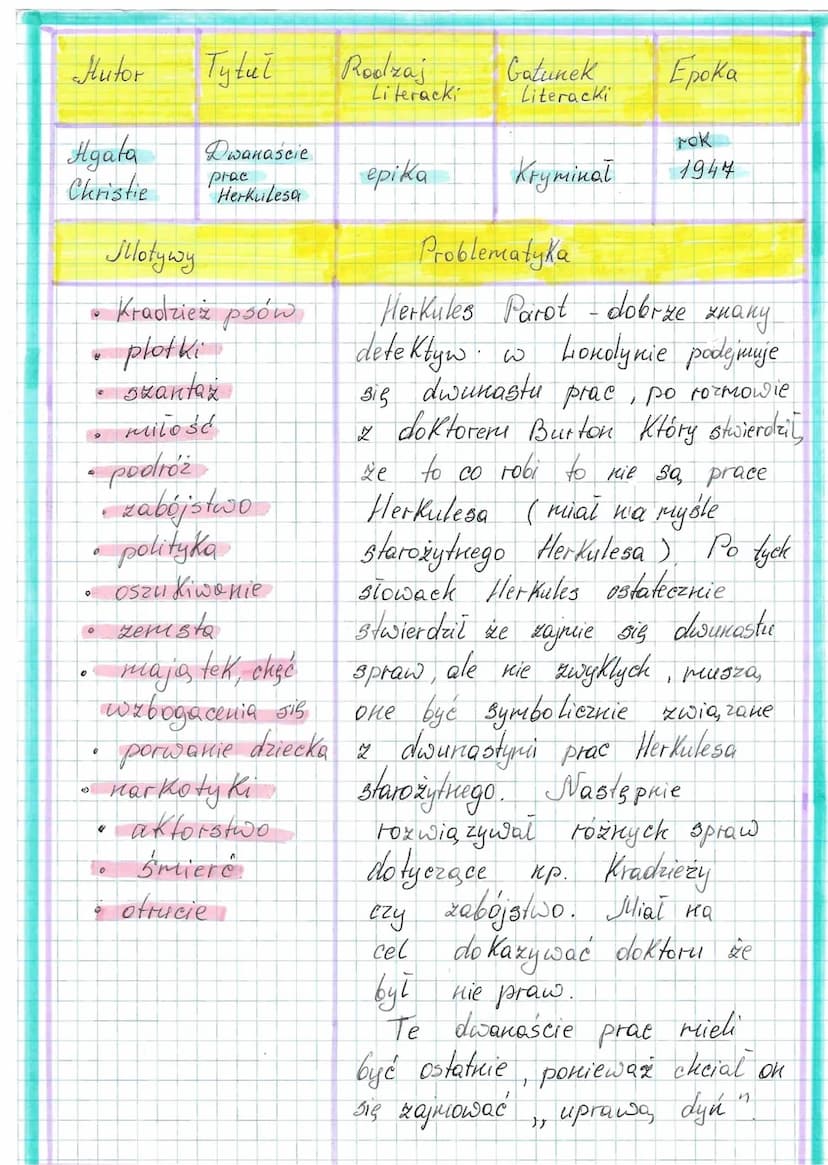 Autor
Tytuł
Rodzaj
Literacki
Gatunek
Literacki
Epoka
Agata
Christie
Dwanaście
prac
Herkulesa
epika
Kryminał
rok
1947
Motywy
Problematyka
• Kradzież psów
• plotki
• szantaż
• miłość
• podróż
• zabójstwo
• polityka
• oszukiwanie
• zemsta
• majątek, chęć
wzbogacenia się
• porwanie dziecka
• narkotyki
• aktorstwo
• śmierć
• otrucie
Herkules Parot - dobrze znany
detektyw. w Londynie podejmuje
się dwunastu prac, po rozmowie
z doktorem Burton Który stwierdził,
że to co robi to nie są prace
Herkulesa (miał na myśle
starożytnego Herkulesa). Po tych
słowach Herkules ostatecznie
stwierdził że zajmie się dwunastu
spraw, ale nie zwykłych, muszą
one być symbolicznie związane
z dwunastymi prac Herkulesa
starożytnego. Następnie
rozwiązywał różnych spraw
dotyczące np. Kradzieży
czy zabójstwo. Miał na
cel dokazywać doktoru że
był nie praw.
Te dwanaście prac mieli
być ostatnie, ponieważ chciał on
się zajmować „uprawą dyń".